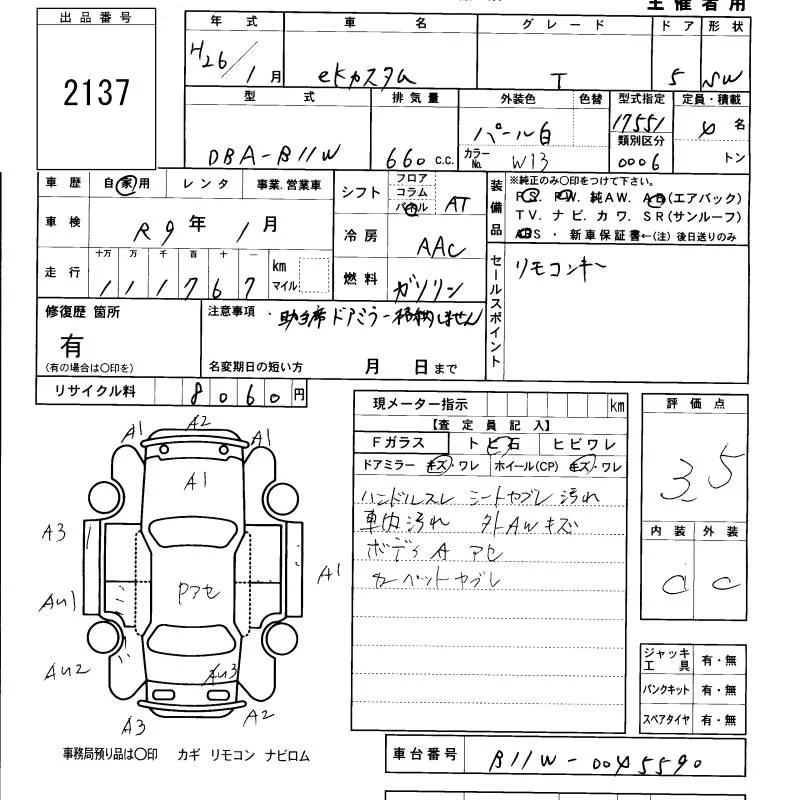 主催者用
出品番号
2137
年式 車名 グレード ドア 形状
H26/1月 eKカスタム T 5 SW
型式 排気量 外装色 色替 型式指定 定員・積載
DBA-B11W 660 c.c. パール白 17551 4名
カラーNo. W13 類別区分 0006 トン
車歴 自家用 レンタ 事業.営業車
シフト フロア コラム パネル AT
装備品 ※純正のみ〇印をつけて下さい。
PS. PW. 純AW. AB(エアバック)
TV. ナビ. カワ. SR(サンルーフ)
ABS ・ 新車保証書←(注) 後日送りのみ
車検 R9年 1月
冷房 AAC
走行 十万 万 千 百 十 一 km マイル
111767
燃料 ガソリン
セールスポイント リモコンキー
修復歴 箇所
有
(有の場合は〇印を)
注意事項 ・助手席ドアミラー格納しません
名変期日の短い方 月 日まで
リサイクル料 8060円
現メーター指示 km
【査定員記入】
Fガラス トビ石 ヒビワレ
ドアミラー キズ・ワレ ホイール(CP) キズ・ワレ
ハンドルスレ シートヤブレ 汚れ
車内汚れ 外AWキズ
ボディA アセ
カーペットヤブレ
評価点
3.5
内装 外装
C C
A1 A2 A1
A1
A3
A1
Au1
Pアセ
Au2
Au3
A3 A2
ジャッキ工具 有・無
パンクキット 有・無
スペアタイヤ 有・無
事務局預り品は〇印 カギ リモコン ナビロム
車台番号 B11W-0045590